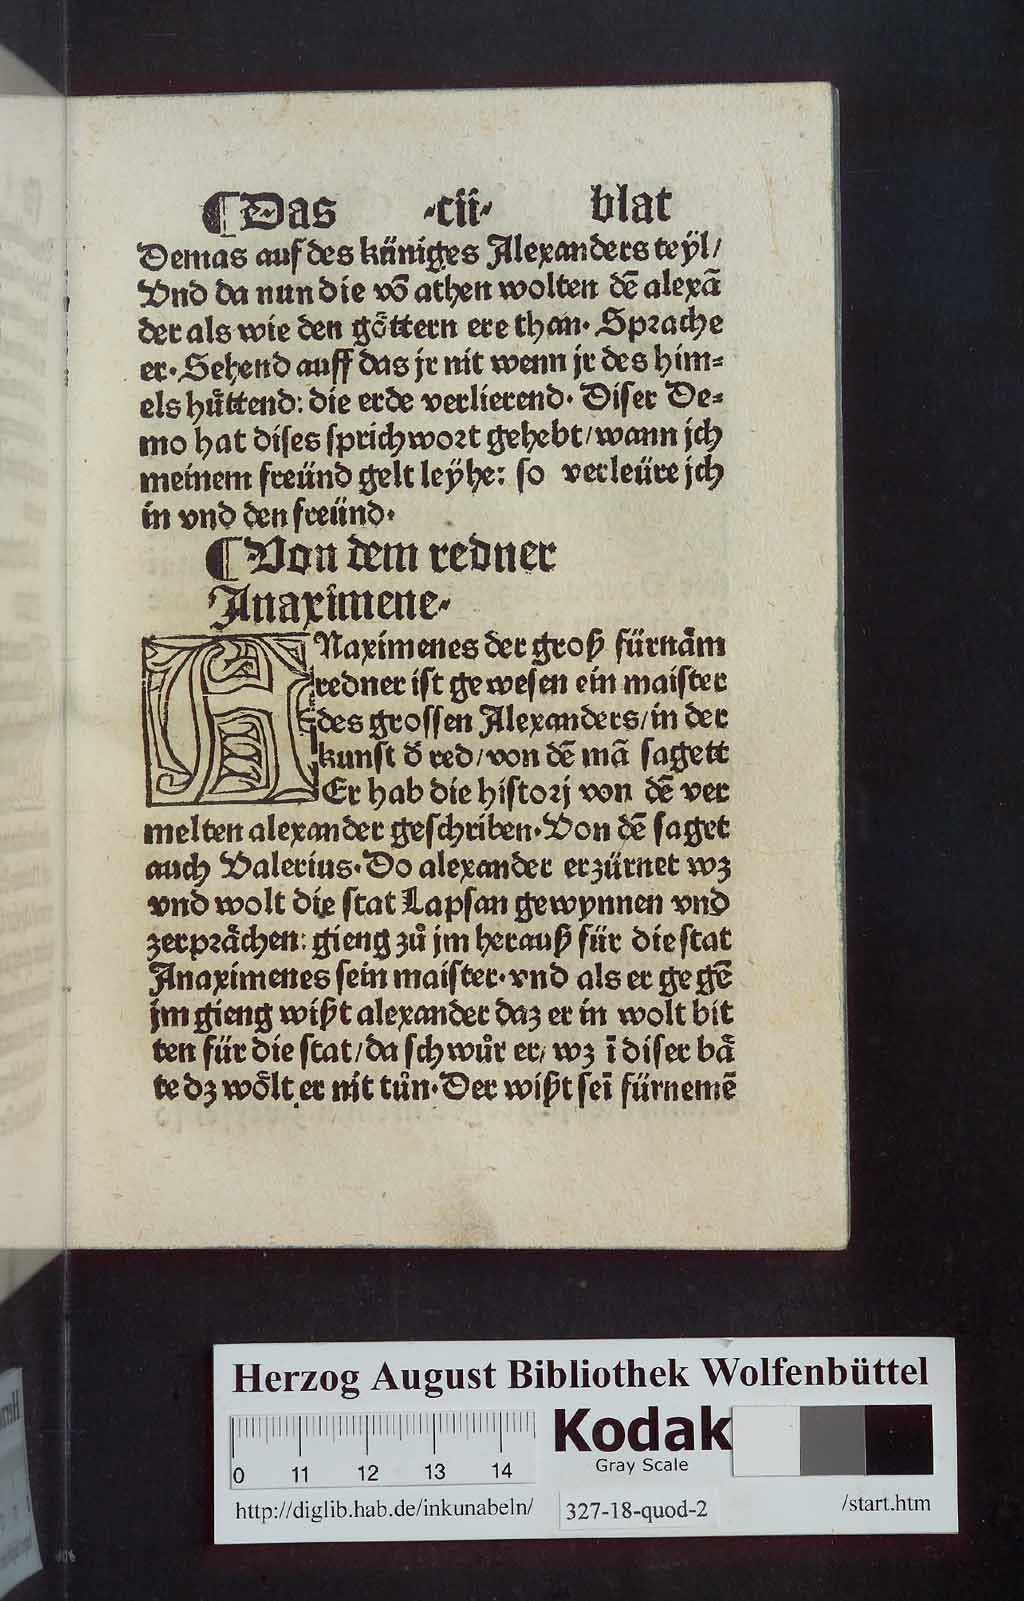 ¶Das ·cii· blat
Demas auf des küniges Alexanders teÿl/
Vnd da nun die vō athen wolten dē alexā
der als wie den göttern ere than. Sprache
er. Sehend auff das jr nit wenn jr des him=
els hüttend: die erde verlierend. Diser De=
mo hat dises sprichwort gehebt/wann jch
meinem freünd gelt leÿhe: so verleüre jch
in vnd den freünd.
¶Von dem redner
Anaximene.
ANaximenes der groß fürnäm
redner ist gewesen ein maister
des grossen Alexanders/in der
kunst d̄ red/von dē mā sagett
Er hab die historj von dē ver
melten alexander geschriben. Von dē saget
auch Valerius. Do alexander erzürnet wz
vnd wolt die stat Lapsan gewynnen vnd
zerprächen: gieng zů jm herauß für die stat
Anaximenes sein maister. vnd als er gegē
jm gieng wißt alexander daz er in wolt bit
ten für die stat/da schwůr er/ wz ī diser bä
te dz wölt er nit tůn. Der wißt seī fürnemē
Herzog August Bibliothek Wolfenbüttel
Kodak
Gray Scale
0 11 12 13 14
http://diglib.hab.de/inkunabeln/ 327-18-quod-2 /start.htm